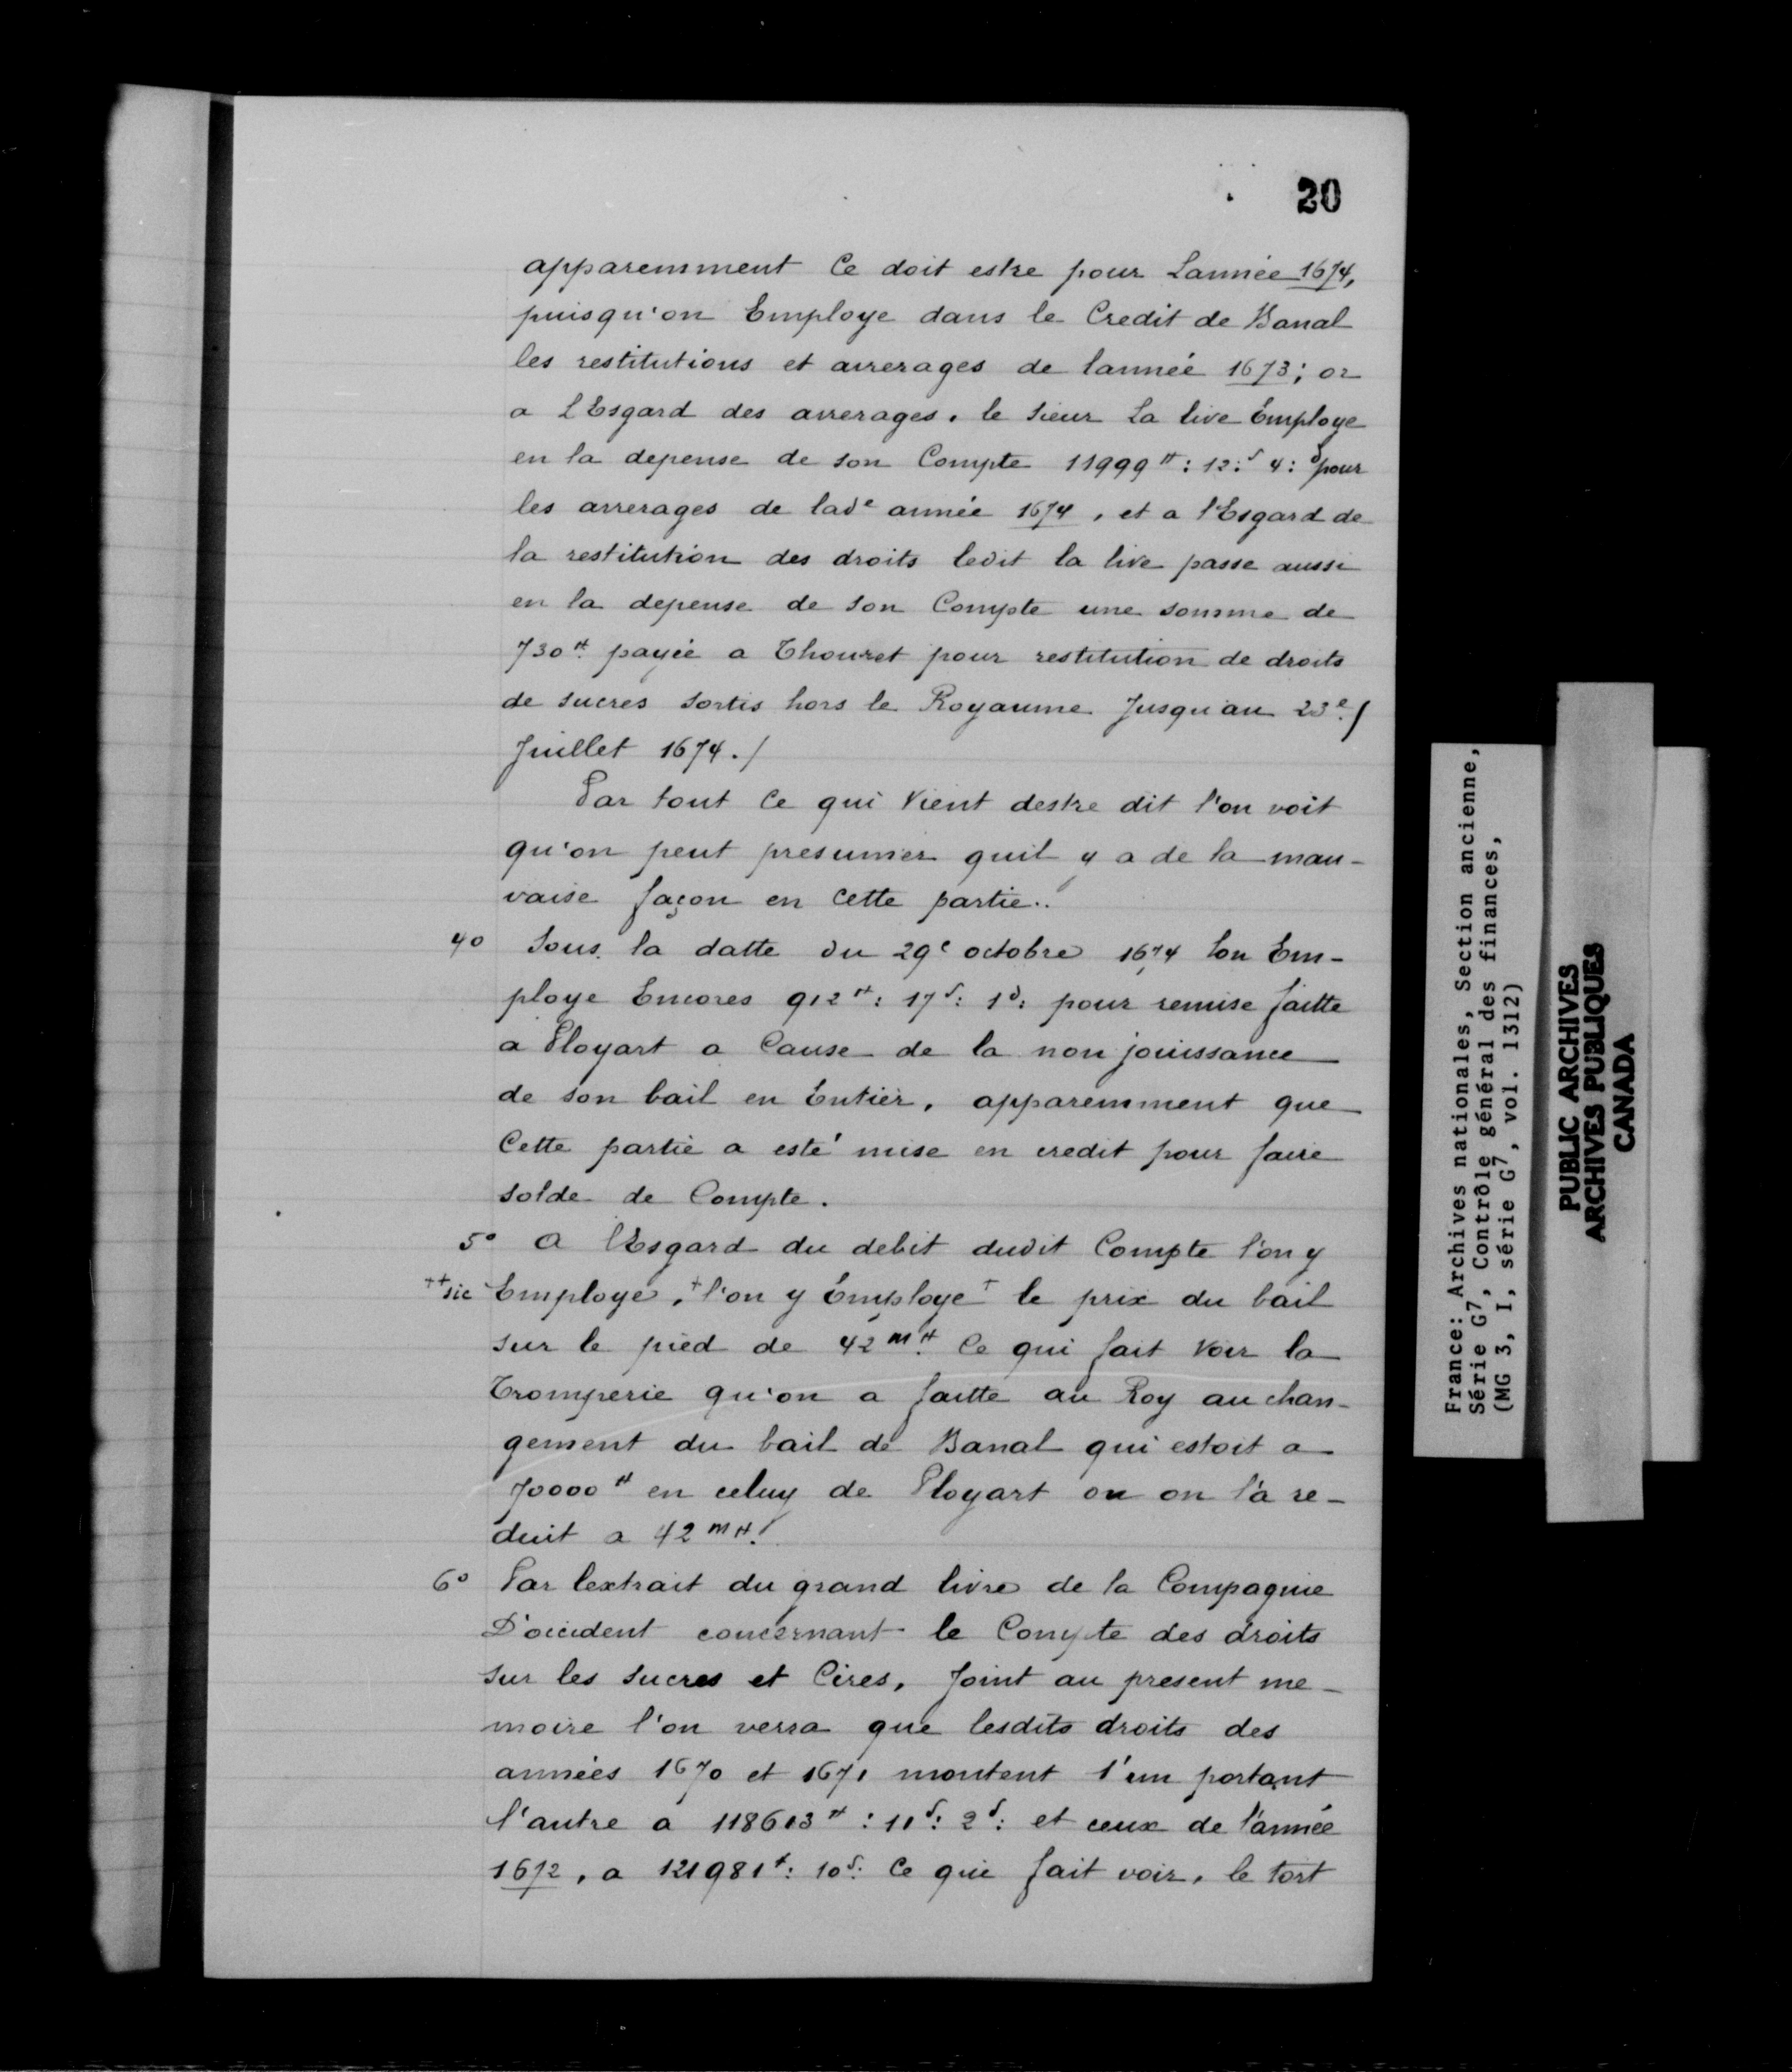 20
apparemment Ce doit estre pour Lannée 1674,
puisqu'on Employe dans le Credit de Banal
les restitutions et arrerages de lanneé 1673; or
a l'Esgard des arrerages. le sieur La live Employe
en la depense de son Compte 11999 ₶: 12: s 4: d pour
les arrerages de lade année 1674, et a l'Esgard de
la restitution des droits ledit la live passe aussi
en la depense de son Compte une somme de
730 ₶. payée a Thouret pour restitution de droits
de sucres sortis hors le Royaume Jusqu'au 23e./
Juillet 1674./
Par tout Ce qui Vient destre dit l'on voit
qu'on peut presumer quil y a de la mau-
vaise façon en Cette partie..
4o Sous. la datte du 29e octobre 1674 lon Em-
ploye Encores 912 ₶: 17 s: 1 d: pour remise faitte
a Ployart a Cause de la non jouissance
de son bail en Entier. apparemment que
Cette partie a esté mise en credit pour faire
solde de Compte.
5o A l'Esgard du debit dudit Compte l'on y
++sic Employe, + l'on y Employe + le prix du bail
sur le pied de 42 m ₶. Ce qui fait Voir la
Tromperie qu'on a faitte au Roy au chan-
gement du bail de Banal qui estoit a
70000 ₶ en celuy de Ployart ou on l'a re-
duit a 42 m ₶.
6o Par lextrait du grand livre de la Compagnie
D'occident concernant le Compte des droits
sur les sucres et Cires, Joint au present me-
moire l'on verra que lesdits droits des
années 1670 et 1671 montent l'un portant
l'autre a 118613 ₶: 11 s: 2 d: et ceux de l'année
1672, a 121981 ₶: 10 s: Ce qui fait voir, le tort
France: Archives nationales, Section ancienne,
Série G7, Contrôle général des finances,
(MG 3, I, série G7, vol. 1312)
PUBLIC ARCHIVES
ARCHIVES PUBLIQUES
CANADA